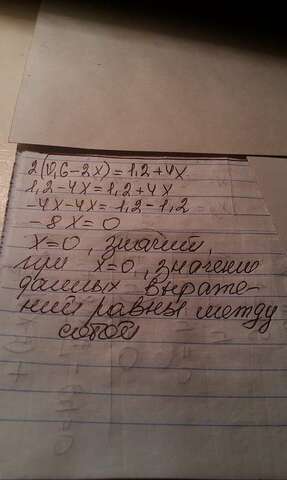 2(0,6-2x)=1,2+4x
1,2-4x=1,2+4x
-4x-4x=1,2-1,2
-8x=0
x=0, значит,
при x=0, значение
данных выраже-
ний равны между
собой